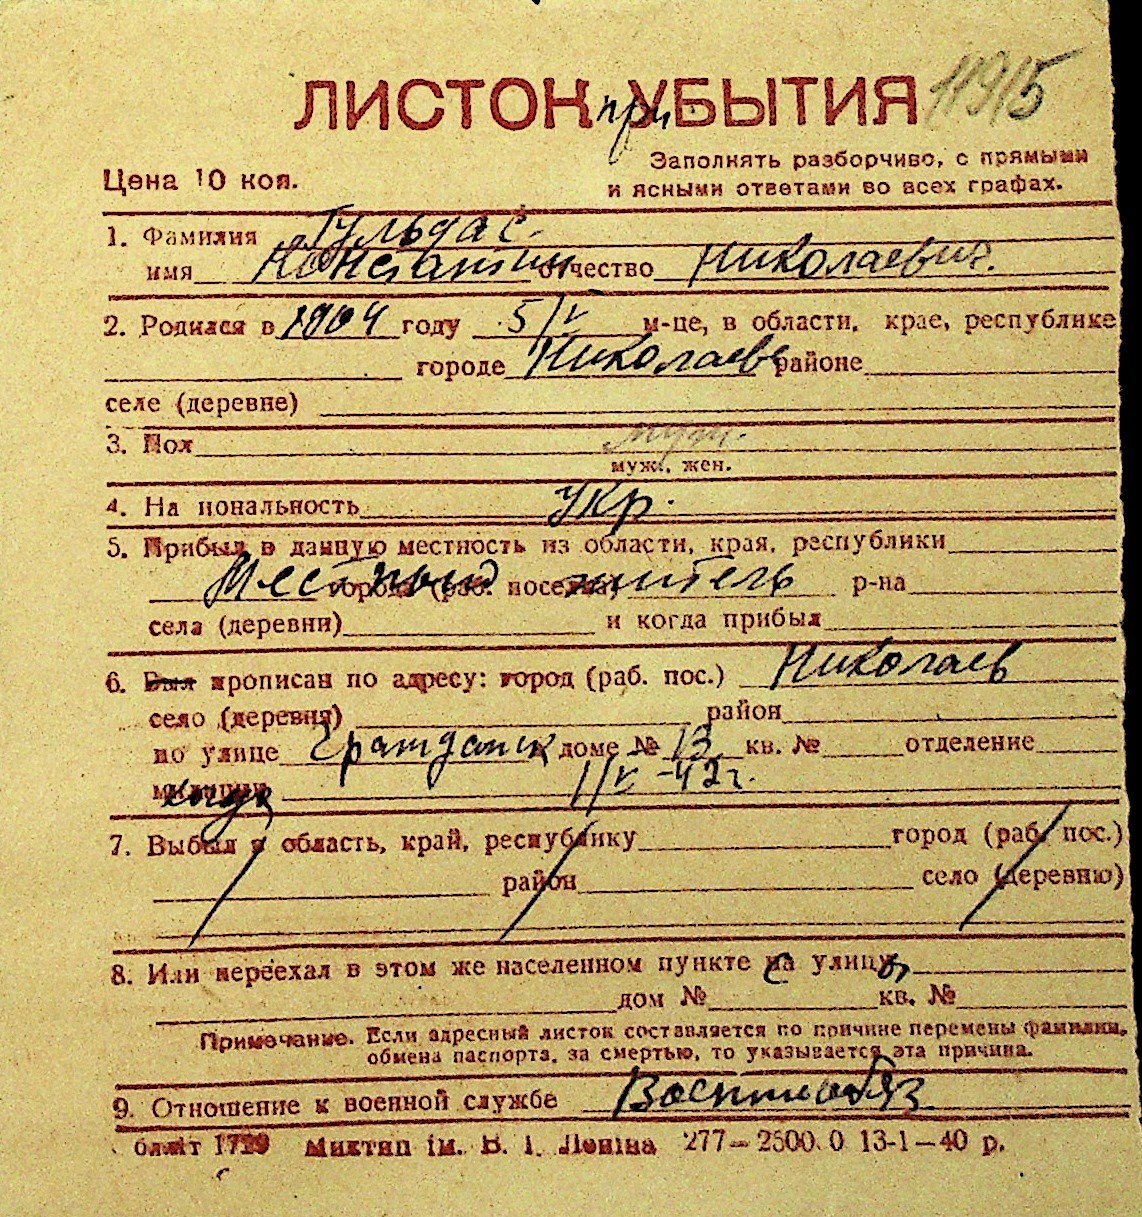 ЛИСТОК при УБЫТИЯ 11915
Цена 10 коп.
Заполнять разборчиво, с прямыми
и ясными ответами во всех графах.
1. Фамилия Гульдас.
имя Константин отчество Николаевич.
2. Родился в 1904 году 5/V м-це, в области, крае, республике
городе Николаеве районе
селе (деревне)
3. Пол муж.
мужч, жен.
4. На иональность Укр.
5. Прибыл в данную местность из области, края, республики
Местный города (раб. поселка) житель р-на
села (деревни) и когда прибыл
6. Был прописан по адресу: город (раб. пос.) Николаев
село (деревня) район
по улице Граждански доме № 13 кв. № отделение
милиции 1/V-42г.
7. Выбыл в область, край, республику город (раб. пос.)
район село (деревню)
8. Или переехал в этом же населенном пункте на улицу
дом № кв. №
Примечание. Если адресный листок составляется по причине перемены фамилии,
обмена паспорта, за смертью, то указывается эта причина.
9. Отношение к военной службе Военнообяз
1729 Миктип ім. В. І. Леніна 277—2500.0 13-1—40 р.